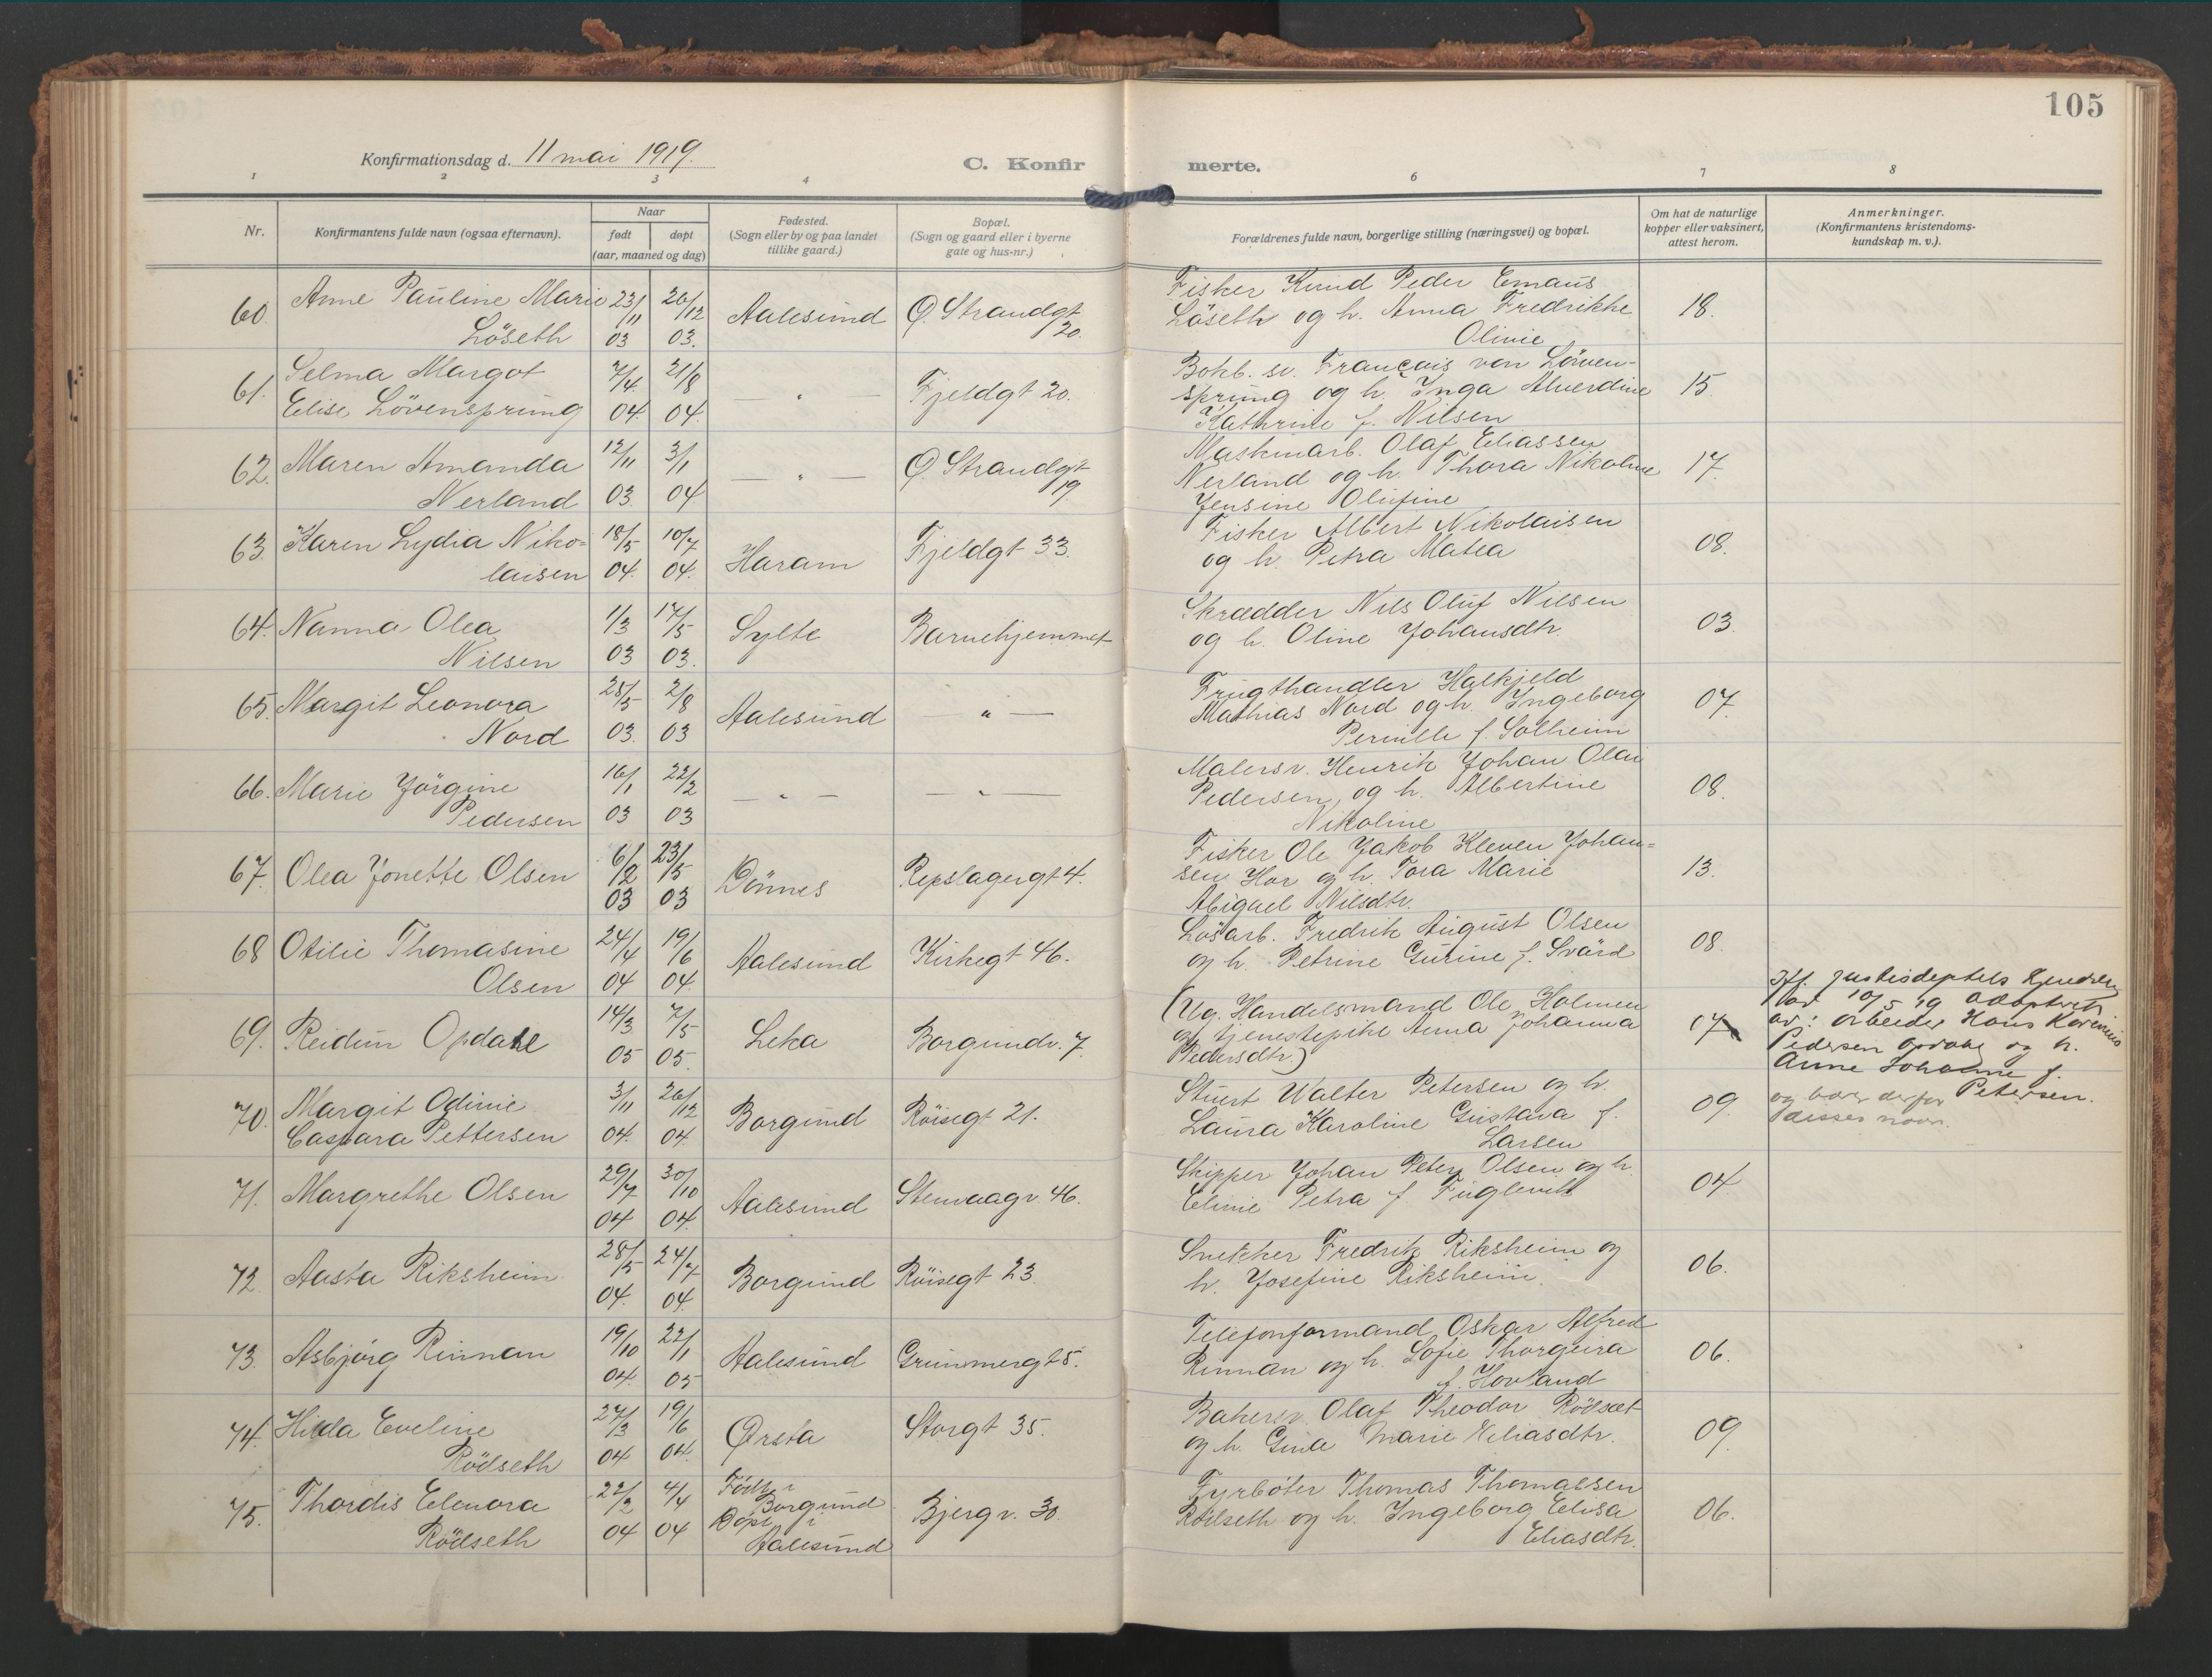 105
Konfirmationsdag d. 11 mai 1919.
C. Konfirmerte.
1 2 3 4 6 7 8
Nr.
Konfirmantens fulde navn (ogsaa efternavn).
Naar
født døpt
(aar, maaned og dag)
Fødested.
(Sogn eller by og paa landet
tillike gaard.)
Bopæl.
(Sogn og gaard eller i byerne
gate og hus-nr.)
Forældrenes fulde navn, borgerlige stilling (næringsvei) og bopæl.
Om hat de naturlige
kopper eller vaksinert,
attest herom.
Anmerkninger.
(Konfirmantens kristendoms-
kundskap m. v.).
60. Anne Pauline Marie 23/11 26/12 Aalesund Ø. Strandgt
Löseth 03 03. 20.
Fisker Knud Peder Emaus
Löseth og h. Anna Fredrikke 18.
Olivie
61. Selma Margot 7/4 21/8 — " — Fjeldgt 20.
Elise Lövensprung 04. 04.
Bokb. sv. Français von Löwen-
sprung og h. Inga Alverdine 15.
Kathrine f. Nilsen
62. Maren Amanda 12/11 3/1 — " — Ø Strandgt
Nerland 03. 04 19
Maskinarb. Olaf Eliassen
Nerland og h. Thora Nikoline 17.
Jensine Olufine
63. Karen Lydia Niko- 18/5 10/7 Haram Fjeldgt 33.
laisen 04. 04.
Fisker Albert Nikolaisen
og h. Petra Matea 08.
64. Nanna Olea 1/3 17/5 Sylte Barnehjemmet
Nilsen 03 03.
Skrædder Nils Oluf Nilsen
og h. Oline Johansdtr. 03.
65. Margit Leonora 25/5 2/8 Aalesund — " —
Nord 03. 03
Frugthandler Halkjeld
Mathias Nord og h. Ingeborg 07.
Pernille f. Solheim
66. Marie Jörgine 16/1 22/2 — " — — " —
Pedersen 03 03
Malersv. Henrik Johan Olai
Pedersen, og h. Albertine 08.
Nikoline
67. Olea Jonette Olsen 6/12 23/5 Dönnes Repslagergt 4.
03 03
Fisker Ole Jakob Kleven Johan-
sen Hov og h. Tora Marie 13.
Abigael Nilsdtr.
68 Otilie Thomasine 24/4 19/6 Aalesund Kirkegt 46.
Olsen 04 04.
Lösarb. Fredrik August Olsen
og h. Petrine Gurine f. Svärd 08.
69. Reidun Opdahl 14/3 7/5 Leka Borgundv. 7.
05 05.
(Ug. Handelsmand Ole Holmen
og tjenestepike Anna Johanna 07
Pedersdtr.)
Iflg. Justisdeptets
av 10/5 19 adoptert
av: arbeider Hans
Pedersen Opdahl og h.
Anne Johanne f.
Petersen.
og bærer derfor
disses navn.
70. Margit Odinie 3/11 26/12 Borgund Röisegt 21.
Caspara Pettersen 04. 04.
Stuert Walter Petersen og h.
Laura Karoline Gustava f. 09.
Larsen
71. Margrethe Olsen 29/7 30/10 Aalesund Stenvaagv. 46.
04 04.
Skipper Johan Peter Olsen og h.
Elinie Petra f. Fuglevik 04.
72. Aasta Riksheim 28/5 24/7 Borgund Röisegt 23.
04. 04.
Snekker Fredrik Riksheim og
h. Josefine Riksheim. 06.
73. Asbjørg Rinnan 19/10 22/1 Aalesund Grimmergt 5.
04. 05
Telefonformand Oskar Alfred
Rinnan og h. Sofie Thorgeira 06.
f. Hovland
74. Hilda Eveline 27/3 19/6 Ørsta Storgt 35.
Rödseth 04 04.
Bakersv. Olaf Theodor Rödset
og h. Gina Marie Eliasdtr. 09.
75. Thordis Elenora 22/2 4/4 Født i Borgund Bjergv. 30.
Rödseth 04 04 Döpt i Aalesund
Fyrböter Thomas Thomassen
Rödseth og h. Ingeborg Elisa 06.
Eliasdtr.